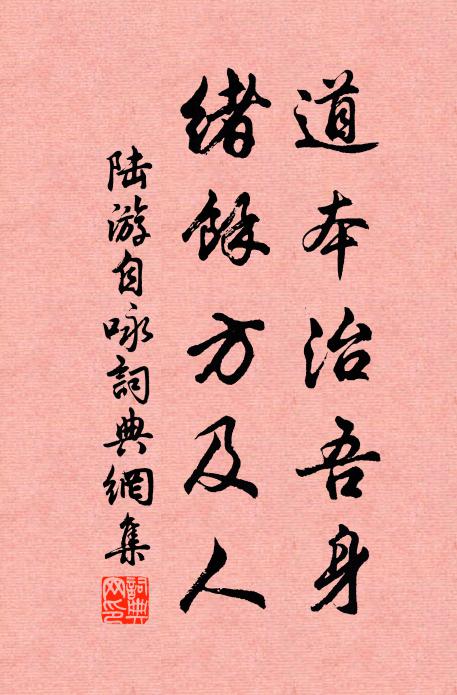 道本治吾身
緒餘方及人
陆游自咏詞典網集
詞典網印